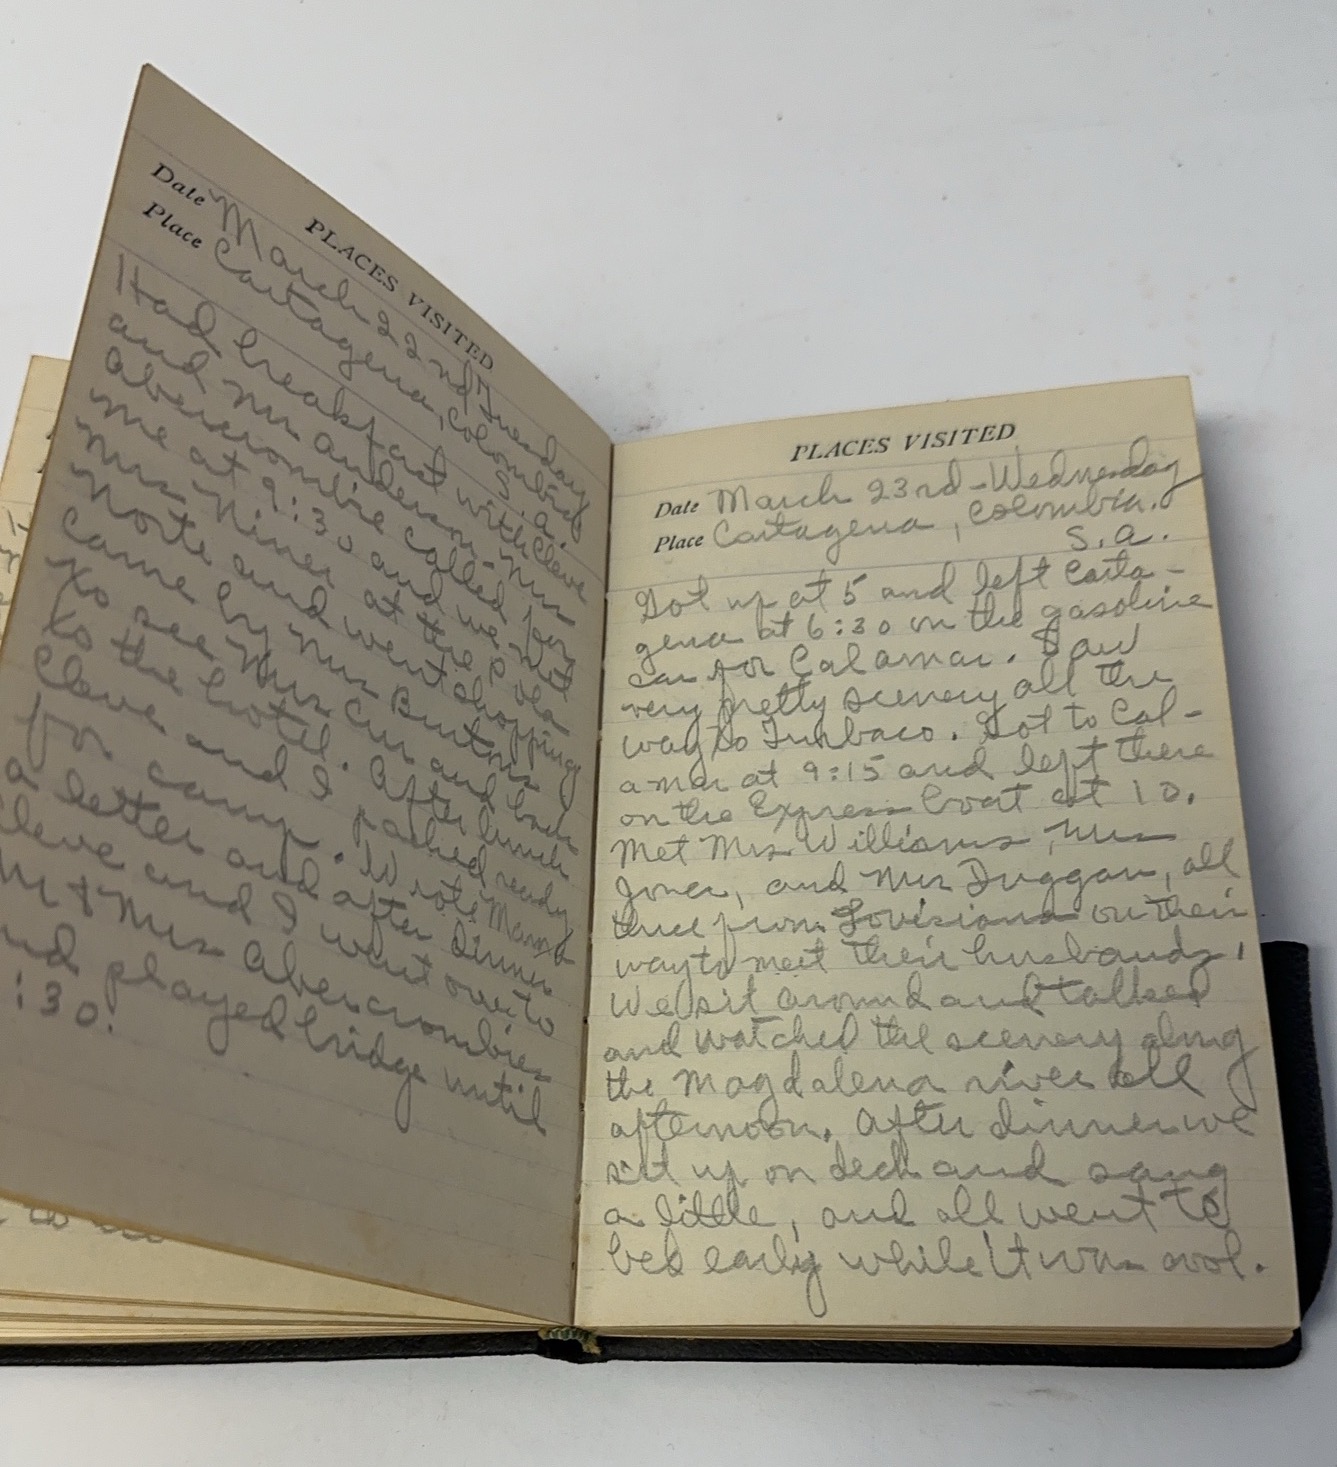 PLACES VISITED
Date March 22nd, Tuesday
Place Cartagena, Colombia
S.A.
Had breakfast with Cleve
and Mr Anderson. Mrs
Abercrombie called for
me at 9:30 and we met
Mrs Niner at the
Norte and went shopping
Came by Mrs Burtons
to see Mrs and back
to the hotel. After lunch
Cleve and I packed ready
for camp. Wrote Mama
a letter and after dinner
Cleve and I went out to
Mr & Mrs Abercrombies
and played bridge until
:30.
PLACES VISITED
Date March 23rd - Wednesday
Place Cartagena, Colombia.
S.A.
Got up at 5 and left Carta-
gena at 6:30 on the gasoline
car for Calamar. Saw
very pretty scenery all the
way to Turbaco. Got to Cal-
amar at 9:15 and left there
on the Express boat at 10.
Met Mrs Williams, Mrs
Jones, and Mrs Duggan, all
three from Lovisiana on their
way to meet their husbands,
We sit around and talked
and watched the scenery along
the Magdalena river all
afternoon. After dinner we
sit up on deck and sang
a little, and all went to
bed early while it was cool.